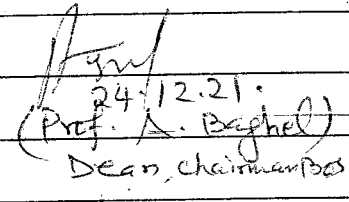 24.12.21.
(Prof. A. Baghel)
Dean, Chairman BOS